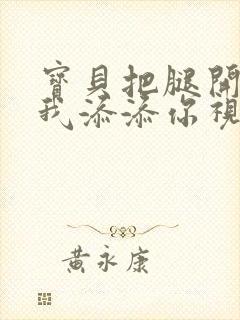 寶貝把腿開
我添添你視
黃永康